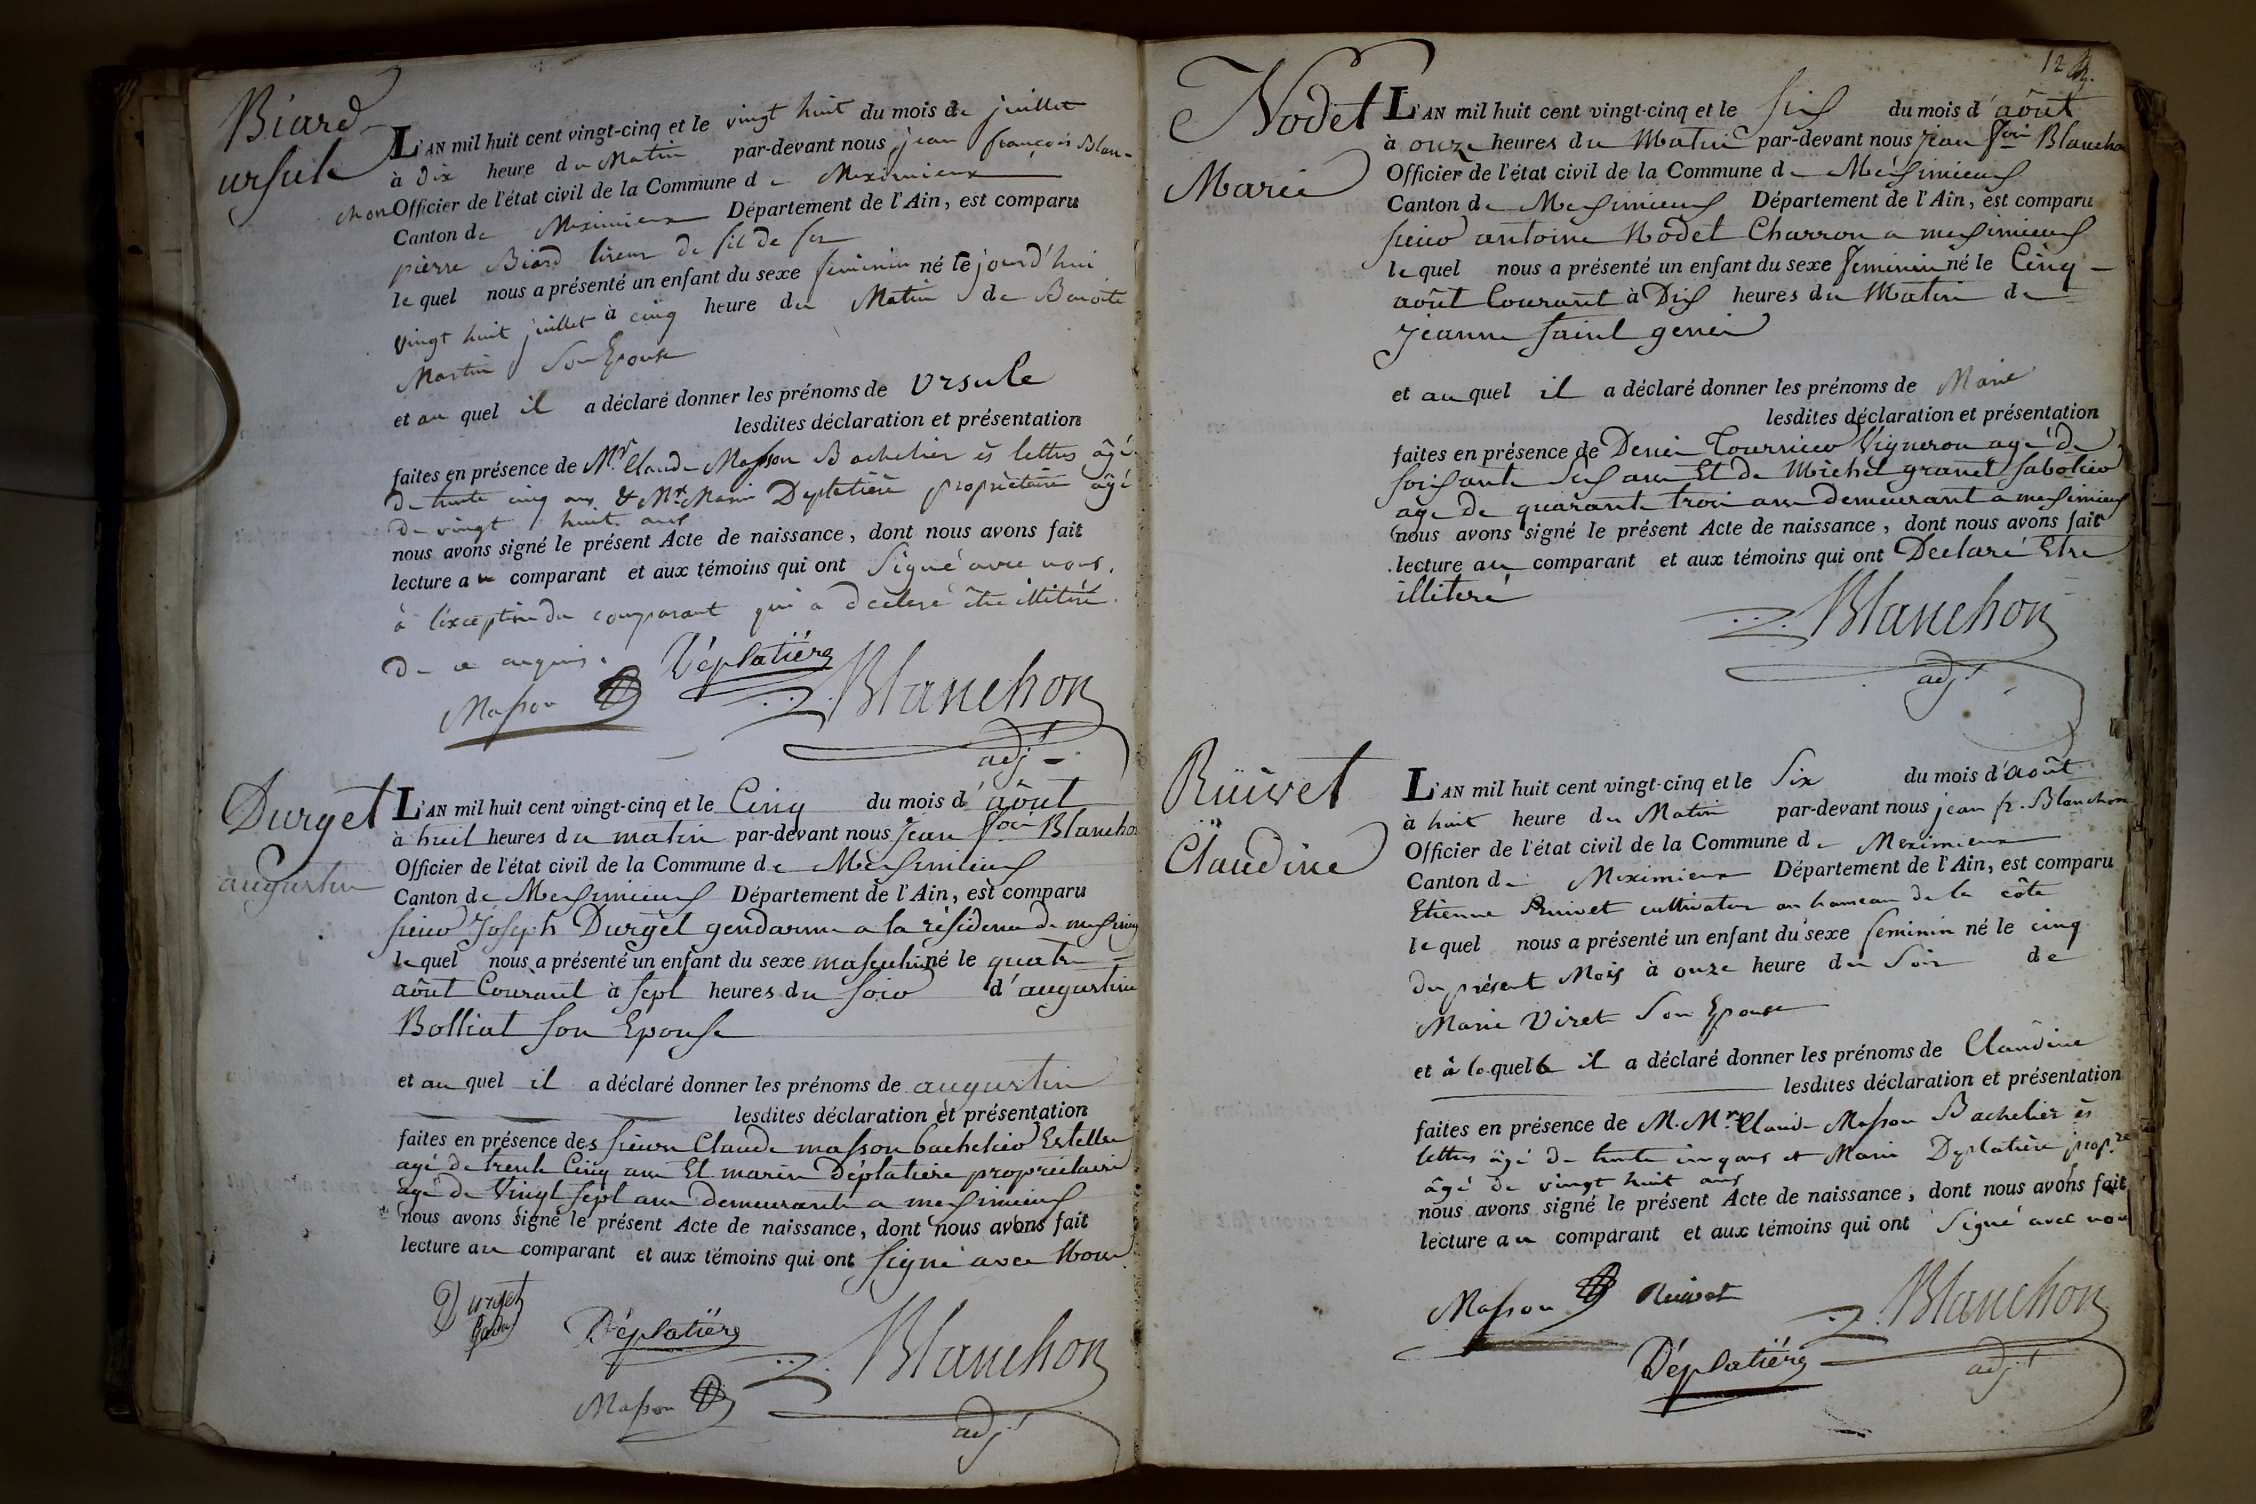 Biard
ursule
L'AN mil huit cent vingt-cinq et le vingt huit du mois de juillet
à dix heure du Matin par-devant nous jean françois Blan-
chon Officier de l'état civil de la Commune de Meximieux
Canton de Meximieux Département de l'Ain, est comparu
pierre Biard tireur de fil de fer
lequel nous a présenté un enfant du sexe feminin né le jourd'hui
vingt huit juillet à cinq heure du Matin de Benoite
Martin Son Epouse
et au quel il a déclaré donner les prénoms de Ursule
lesdites déclaration et présentation
faites en présence de Mr. Claude Masson Bachelier ès lettres âgé
de trente cinq ans & Mr. Marin Deplatière propriétaire âgé
de vingt huit ans
nous avons signé le présent Acte de naissance, dont nous avons fait
lecture au comparant et aux témoins qui ont Signé avec nous.
à l'éxception du comparant qui a déclaré être illitéré.
de ce enquis.
Déplatière
Masson
Blanchon
adj.t
Durget
augustin
L'AN mil huit cent vingt-cinq et le Cinq du mois d'août
à huit heures du matin par-devant nous Jean fçoi Blancho
Officier de l'état civil de la Commune de Mesimieus
Canton de Mesimieus Département de l'Ain, est comparu
sieur Joseph Durget gendarme a la résidence de
lequel nous a présenté un enfant du sexe masculin né le quatre
août Courant à sept heures du soir d'augustine
Bolliat son Epouse
et au quel il a déclaré donner les prénoms de augustin
lesdites déclaration et présentation
faites en présence des sieurs Claude masson bachelier Eslettre
agé de trente Cinq ans Et marin Déplatiere propriétaire
agé de Vingt sept ans demeurants a mesimieus
nous avons signé le présent Acte de naissance, dont nous avons fait
lecture au comparant et aux témoins qui ont signé avec Nous
Durget
Déplatière
Blanchon
Masson
adj.t
12
Nodet
Marie
L'AN mil huit cent vingt-cinq et le sis du mois d'août
à onze heures du Matin par-devant nous jean fçoi Blancho
Officier de l'état civil de la Commune de Mésimieus
Canton de Mesimieus Département de l'Ain, est comparu
sieur antoine Nodet Charron a mesimieus
lequel nous a présenté un enfant du sexe feminin né le Cinq
août Courant à Dis heures du Matin de
jeanne saint genei
et au quel il a déclaré donner les prénoms de Marie
lesdites déclaration et présentation
faites en présence de Denei Tournier Vigneron agé de
soisante sis ans Et de Michel granet sabotier
age de quarante troi ans demeurant a mesimieus
nous avons signé le présent Acte de naissance, dont nous avons fait
lecture au comparant et aux témoins qui ont Declaré Etre
illiteré
Blanchon
adj.t
Ruivet
Claudine
L'AN mil huit cent vingt-cinq et le Six du mois d'août
à huit heure du Matin par-devant nous jean fr. Blanchon
Officier de l'état civil de la Commune de Meximieux
Canton de Meximieux Département de l'Ain, est comparu
Etienne Ruivet cultivateur au hameau de la côte
lequel nous a présenté un enfant du sexe feminin né le cinq
du présent Mois à onze heure du Soir de
Marie Viret Son Epouse
et à laquelle il a déclaré donner les prénoms de Claudine
lesdites déclaration et présentation
faites en présence de M. Mr. Claude Masson Bachelier ès
lettres âgé de trente cinq ans et Marin Deplatière prop.re
âgé de vingt huit ans
nous avons signé le présent Acte de naissance, dont nous avons fait
lecture au comparant et aux témoins qui ont Signé avec nous
Masson Ruivet
Blanchon
Déplatière
adj.t